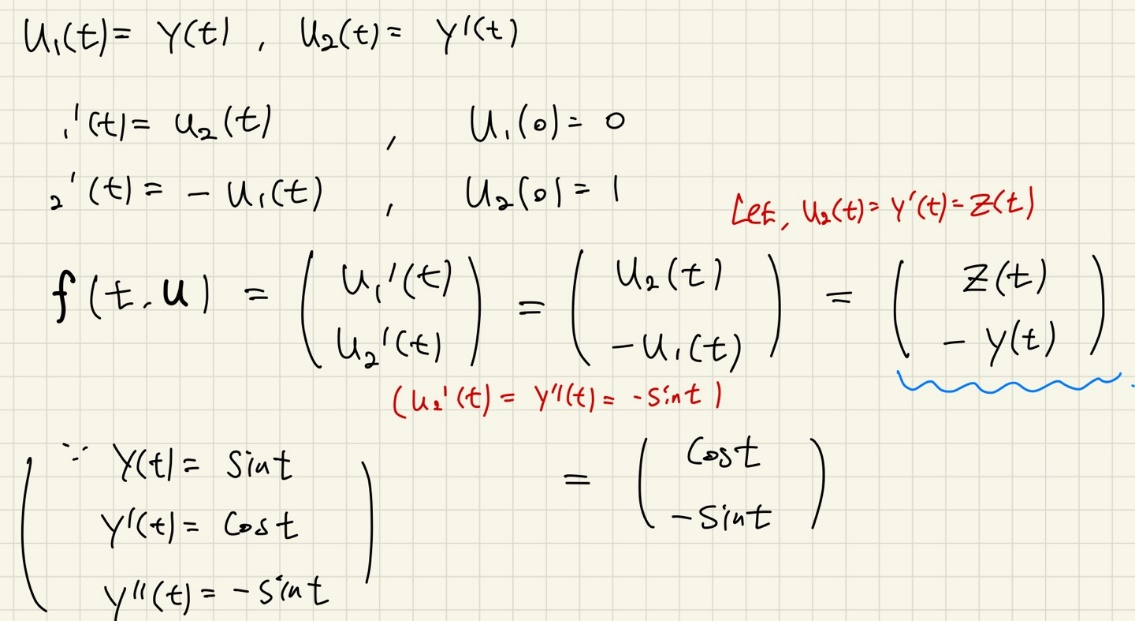 U₁(t)= Y(t) , U₂(t)= Y'(t)
₁'(t)= u₂(t) , U₁(0)= 0
₂'(t)= - U₁(t) , U₂(0)= 1
Let, U₂(t)= Y'(t)=Z(t)
f(t.u) = ( U₁'(t) U₂'(t) ) = ( U₂(t) -U₁(t) ) = ( Z(t) - Y(t) )
(U₂'(t)= Y''(t)= -Sint )
( ∵ Y(t)= Sint
Y'(t)= Cost
Y''(t)= -Sint )
= ( Cost -Sint )